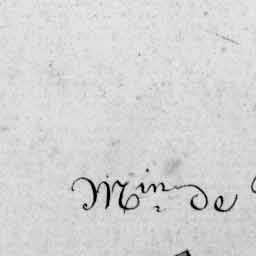 Min. de